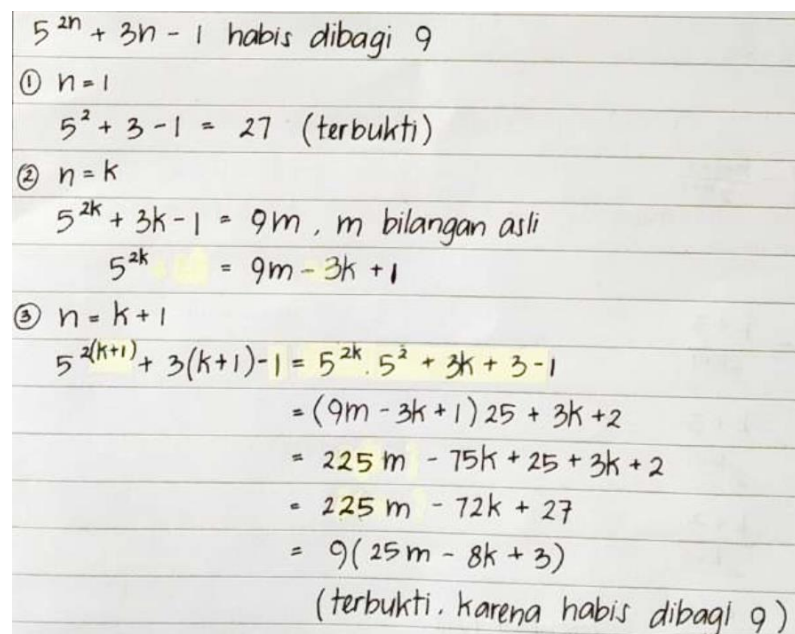 5^{2n} + 3n - 1 habis dibagi 9
① n = 1
5² + 3 - 1 = 27 (terbukti)
② n = k
5^{2k} + 3k - 1 = 9m, m bilangan asli
5^{2k} = 9m - 3k + 1
③ n = k + 1
5^{2(k+1)} + 3(k+1) - 1 = 5^{2k} . 5² + 3k + 3 - 1
= (9m - 3k + 1) 25 + 3k + 2
= 225 m - 75k + 25 + 3k + 2
= 225 m - 72k + 27
= 9(25m - 8k + 3)
(terbukti, karena habis dibagi 9)